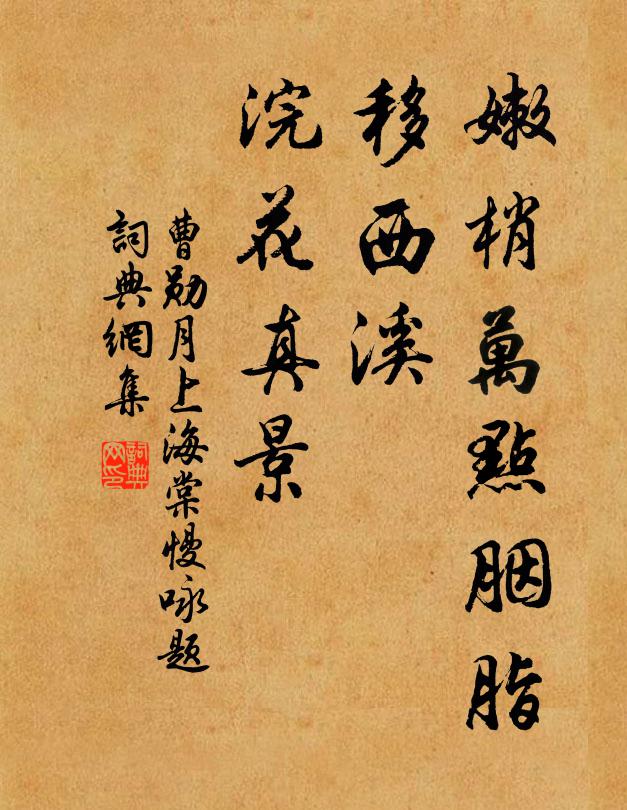 嫩梢萬點胭脂
移西溪
浣花真景
曹勛月上海棠慢咏题
詞典網集
詞典網印